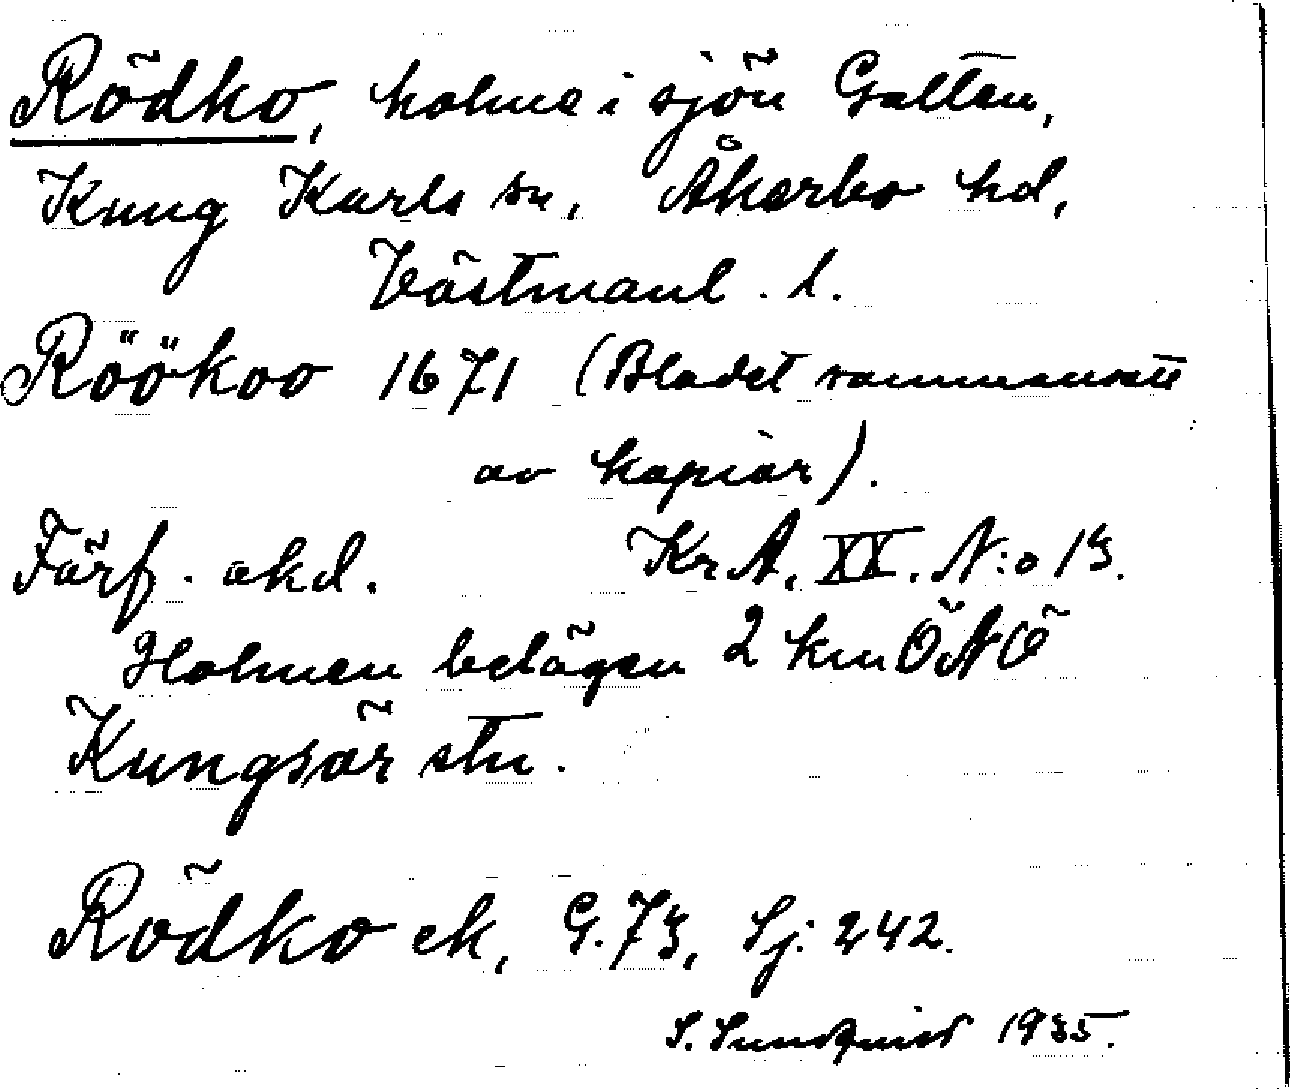 Rödko, holme i sjön Galten,
Kung Karls sn, Åkerbo hd,
Västmanl. l.
Röökoo 1671 (Bladet sammansatt
av kopior).
Förf. okd. Kr A. XX. N:o 13.
Holmen belägen 2 km ÖNÖ
Kungsör stn.
Rödko ek, G. 73, Sj: 242.
S. Sundquist 1935.